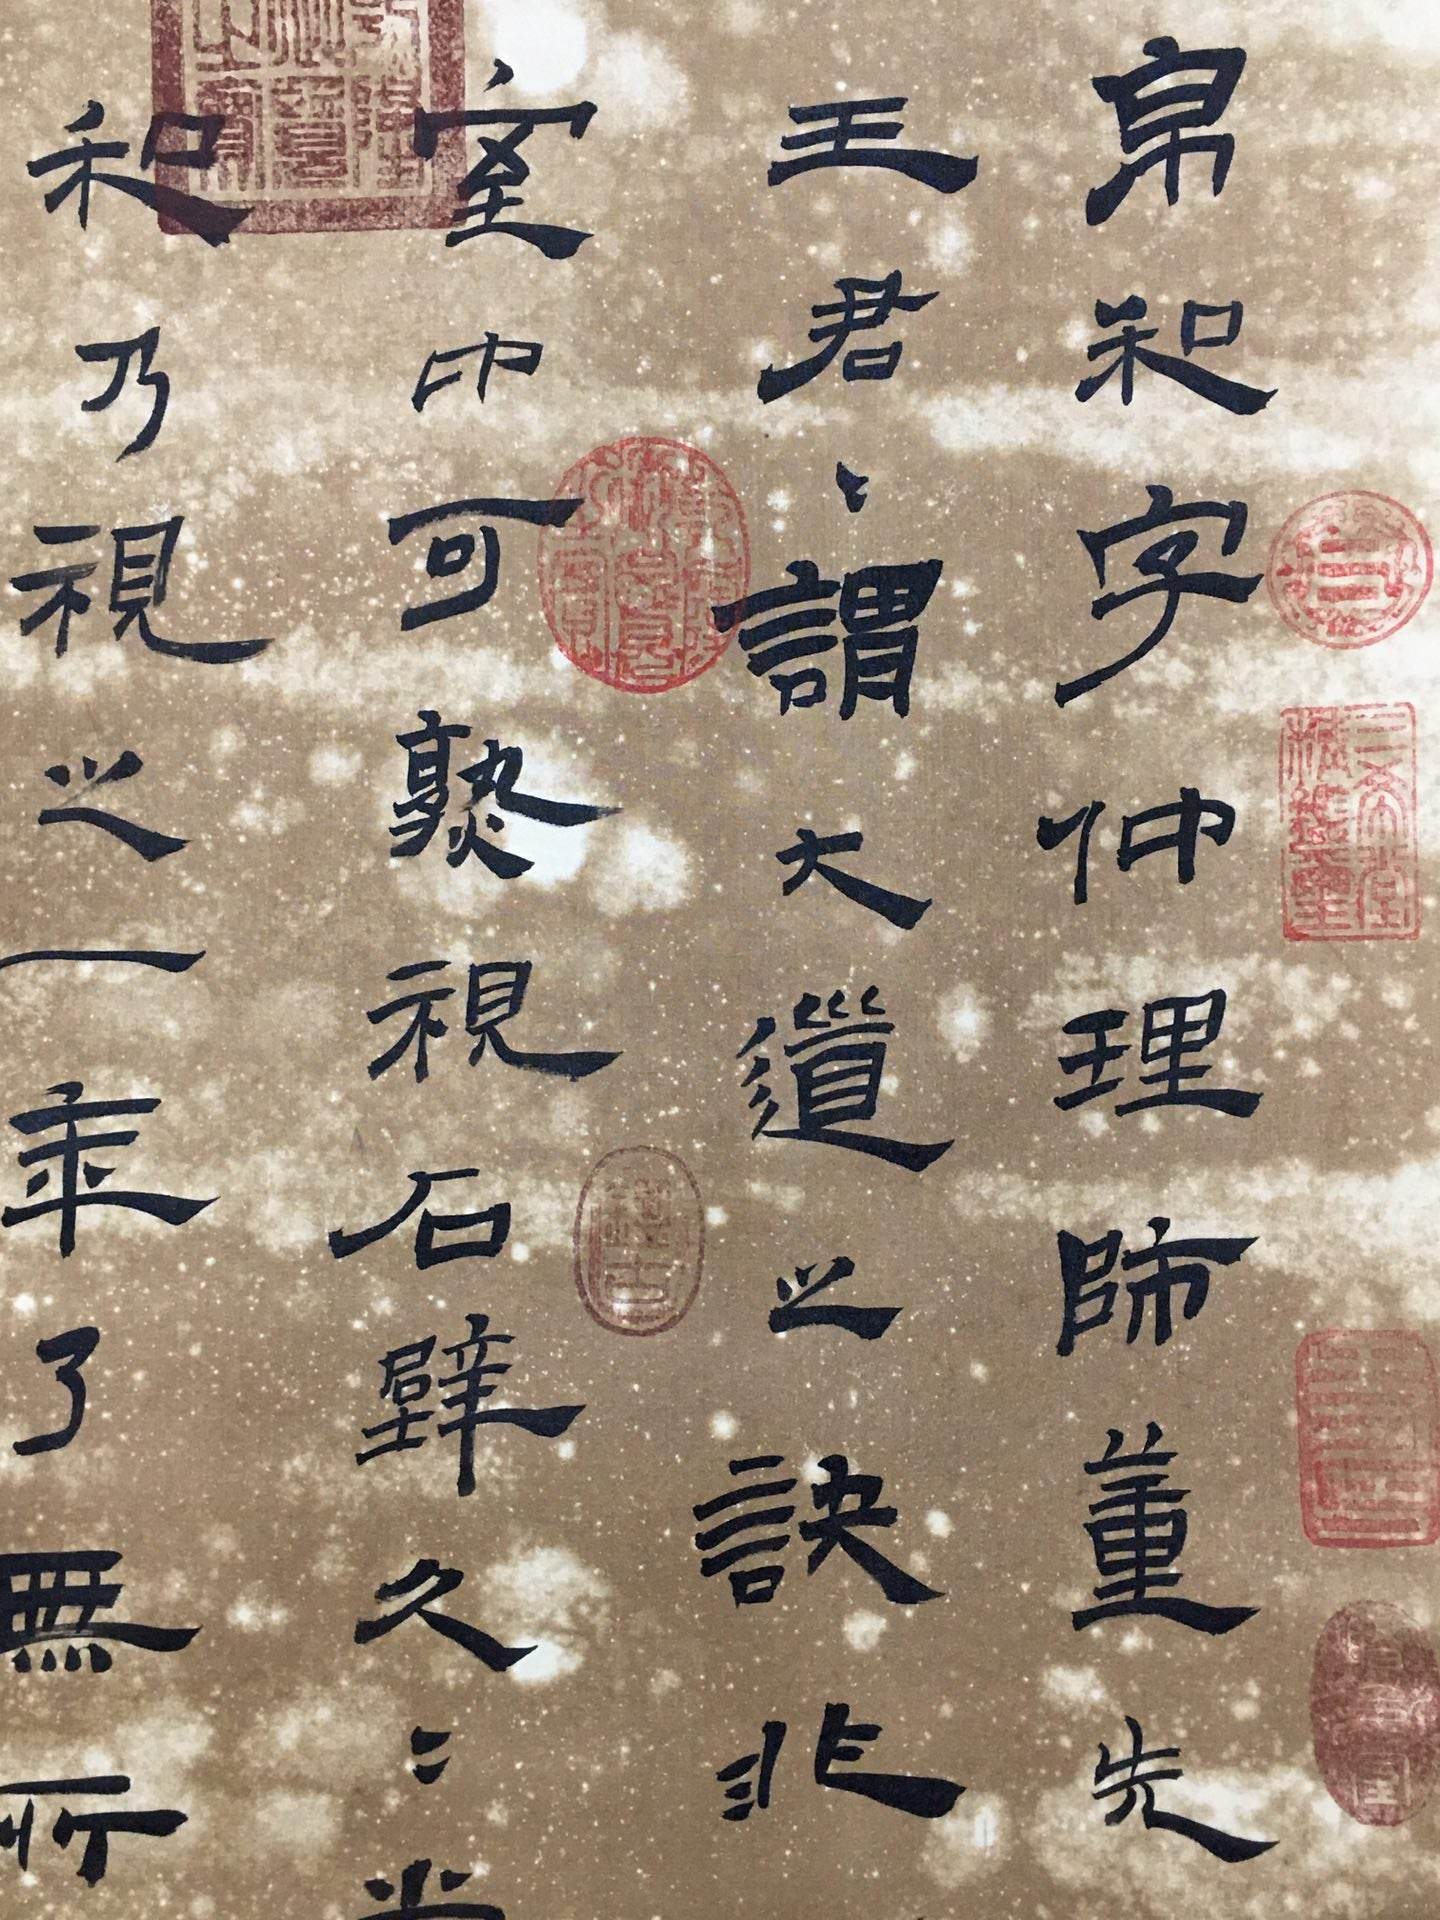 帛和字仲理師董先
王君〻謂大道之訣非
室中可熟視石壁久〻當
和乃視之一年了無所